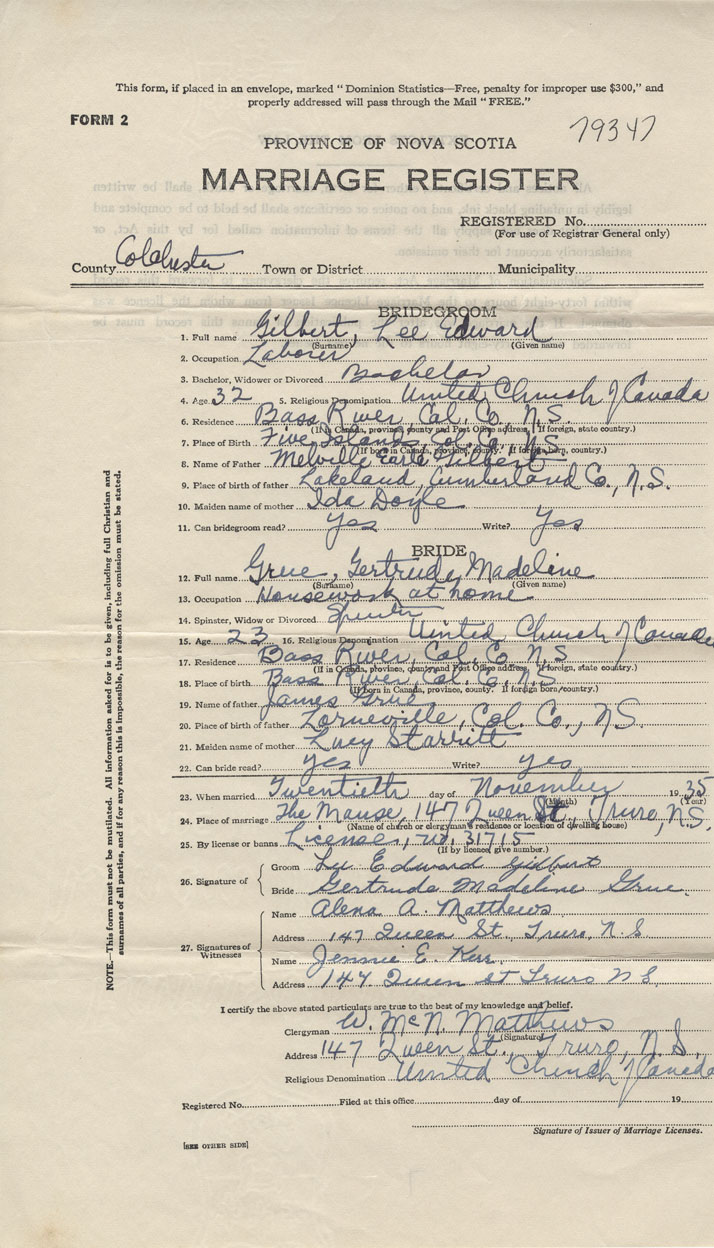 This form, if placed in an envelope, marked "Dominion Statistics—Free, penalty for improper use $300," and
properly addressed will pass through the Mail "FREE."
FORM 2
79347
PROVINCE OF NOVA SCOTIA
MARRIAGE REGISTER
REGISTERED No.
(For use of Registrar General only)
County Colchester Town or District Municipality
BRIDEGROOM
1. Full name Gilbert, Lee Edward
(Surname) (Given name)
2. Occupation Laborer
3. Bachelor, Widower or Divorced Bachelor
4. Age 32 5. Religious Denomination United Church of Canada
6. Residence Bass River, Col. Co., N.S.
(If in Canada, province, county and Post Office address. If foreign, state country.)
7. Place of Birth Five Islands, Col. Co., N.S.
(If born in Canada, province, county. If foreign born, country.)
8. Name of Father Melville Earle Gilbert
9. Place of birth of father Lakeland, Cumberland Co., N.S.
10. Maiden name of mother Ida Doyle
11. Can bridegroom read? Yes Write? Yes
BRIDE
12. Full name Grue, Gertrude Madeline
(Surname) (Given name)
13. Occupation Housework at home
14. Spinster, Widow or Divorced Spinster
15. Age 23 16. Religious Denomination United Church of Canada
17. Residence Bass River, Col. Co N.S
(If in Canada, province, county and Post Office address, If foreign, state country.)
18. Place of birth Bass River, Col. Co. N.S.
(If born in Canada, province, county. If foreign born country.)
19. Name of father James Grue
20. Place of birth of father Lorneville, Col. Co., N.S.
21. Maiden name of mother Lucy Starritt
22. Can bride read? yes Write? yes
23. When married Twentieth day of November 1935
(Month) (Year)
24. Place of marriage The Manse, 147 Queen St., Truro, N.S.
(Name of church or clergyman's residence or location of dwelling house)
25. By license or banns License, no. 31715
(If by licence give number.)
26. Signature of
Groom Lee Edward Gilbert
Bride Gertrude Madeline Grue.
27. Signatures of Witnesses
Name Alena A. Matthews
Address 147 Queen St., Truro, N.S
Name Jennie E. Kerr.
Address 147 Queen st Truro N S
I certify the above stated particulars are true to the best of my knowledge and belief.
Clergyman W. McN. Matthews
(Signature)
Address 147 Queen St., Truro, N.S.
Religious Denomination United Church of Canada
Registered No. Filed at this office day of 19
Signature of Issuer of Marriage Licenses.
[SEE OTHER SIDE]
NOTE.—This form must not be mutilated. All information asked for is to be given, including full Christian and
surnames of all parties, and if for any reason this is impossible, the reason for the omission must be stated.